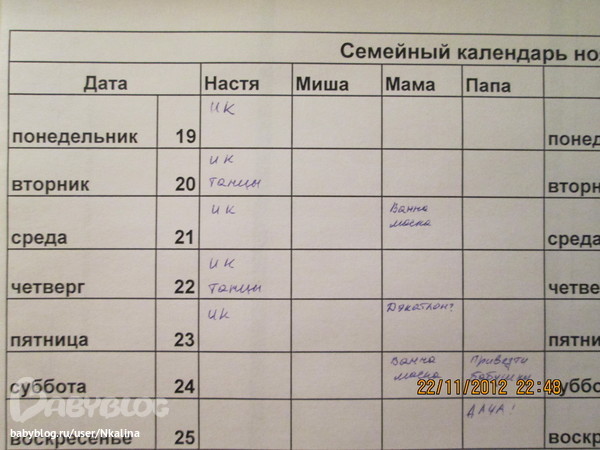 Семейный календарь ноя
Дата Настя Миша Мама Папа
понедельник 19 ИК понед
вторник 20 ИК танцы вторн
среда 21 ИК Ванна маска среда
четверг 22 ИК танцы четве
пятница 23 ИК Декатлон? пятни
суббота 24 Ванна маска Привезти бабушку суббо
22/11/2012 22:48
воскресенье 25 ДАЧА! воскре
BABYBLOG
babyblog.ru/user/Nkalina